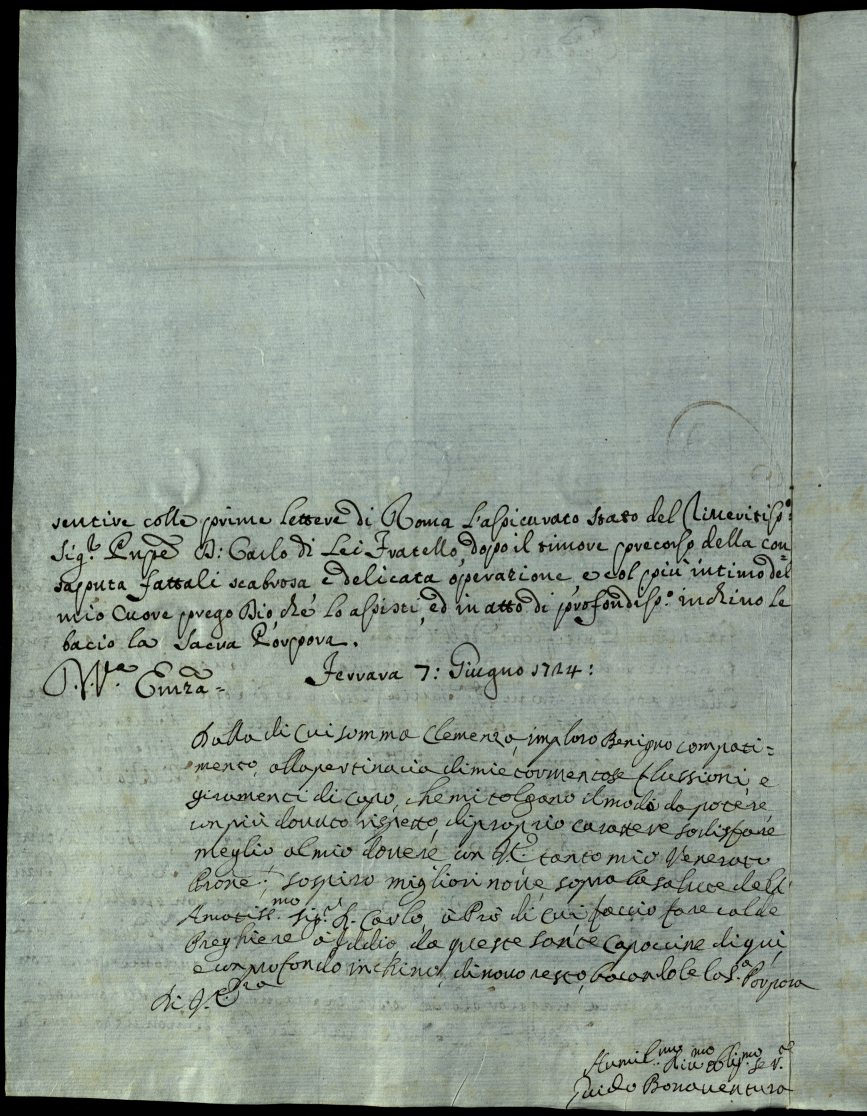 sentire colle prime lettere di Roma l'assicurato stato del Riveritiss.º
Sig.r Pnpe D: Carlo di Lei Fratello, dopo il timore precorso della con
saputa fattali scabrosa e delicata operazione, e col più intimo del
mio Cuore prego Dio, che lo assisti, ed in atto di profondiss.º inchino le
bacio la Sacra Porpora.
Ferrara 7: Giugno 1724:
D. V.ra Emza =
Dalla di cui somma Clemenza, imploro Benigno compati=
mento, alla pertinacia di mie tormentose flussioni, e
giramenti di capo, che mi tolgano il modo da potere
con più dovuto rispetto, di proprio carattere sodisfare
meglio al mio dovere con V.E. tanto mio Venerato
Prone: sospiro migliori nove, sopra la salute dell'
Amatiss.mo Sig.r D. Carlo, à Prò di cui faccio fare calde
Preghiere à Iddio da queste Sante Capoccine di quì
e con profondo inchino, di novo resto, baciandole la S.a Porpora
Di V.Era
Humil.mo Div.mo Oblig.mo Se.re
Guido Bonaventura